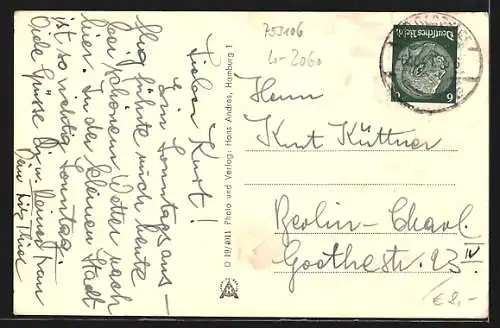 Lieber Kurt!
Ein Sonntagsaus-
flug führte mich heute
bei schönem Wetter nach
hier. In der kleinen Stadt
ist so richtig Sonntag.
Viele Grüsse Dir u. Deiner Frau
Dein
O 19/4011 Photo und Verlag: Hans Andres, Hamburg 1
753406
Deutsches Reich
6
Herrn
Kurt Küttner
Berlin-Charl.
Goethestr. 23 IV.
€ 2,-